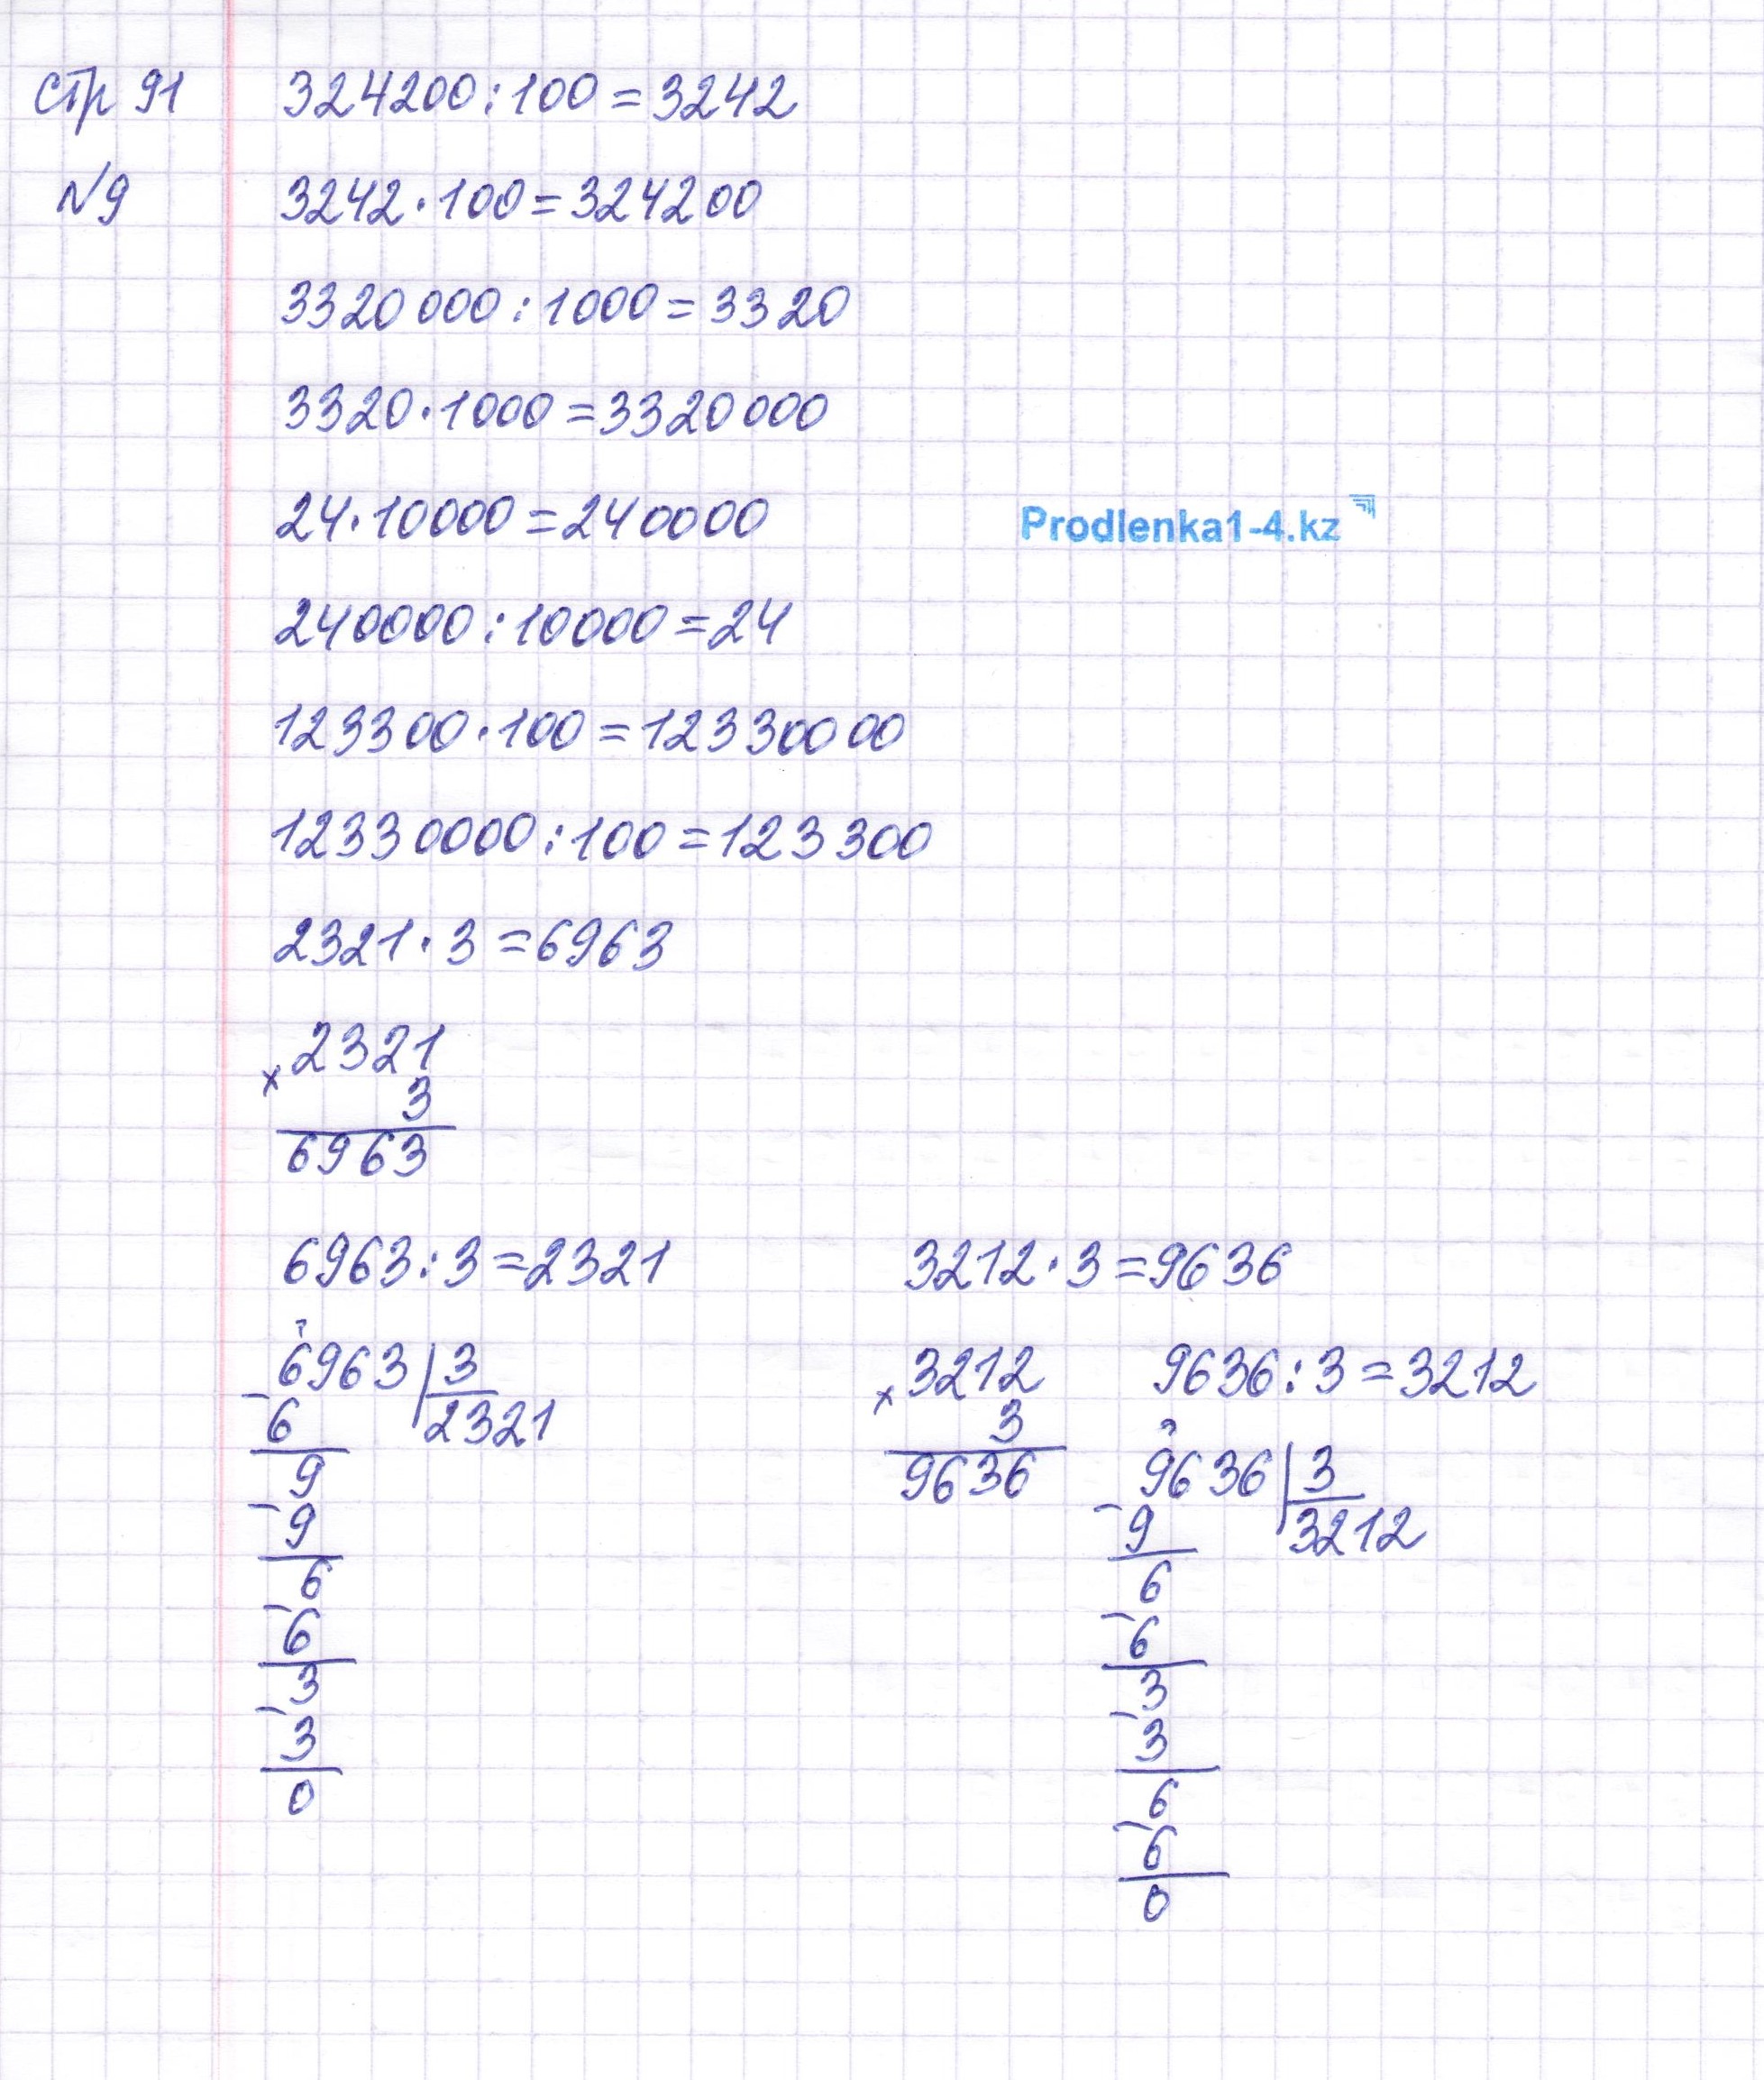 стр 91 324200:100=3242
№9 3242·100=324200
3320000:1000=3320
3320·1000=3320000
24·10000=240000
Prodlenka1-4.kz
240000:10000=24
123300·100=12330000
12330000:100=123300
2321·3=6963
2321
×
3
6963
6963:3=2321
6963 | 3
- 6 2321
9
- 9
6
- 6
3
- 3
0
3212·3=9636
3212
×
3
9636
9636:3=3212
9636 | 3
- 9 3212
6
- 6
3
- 3
6
- 6
0